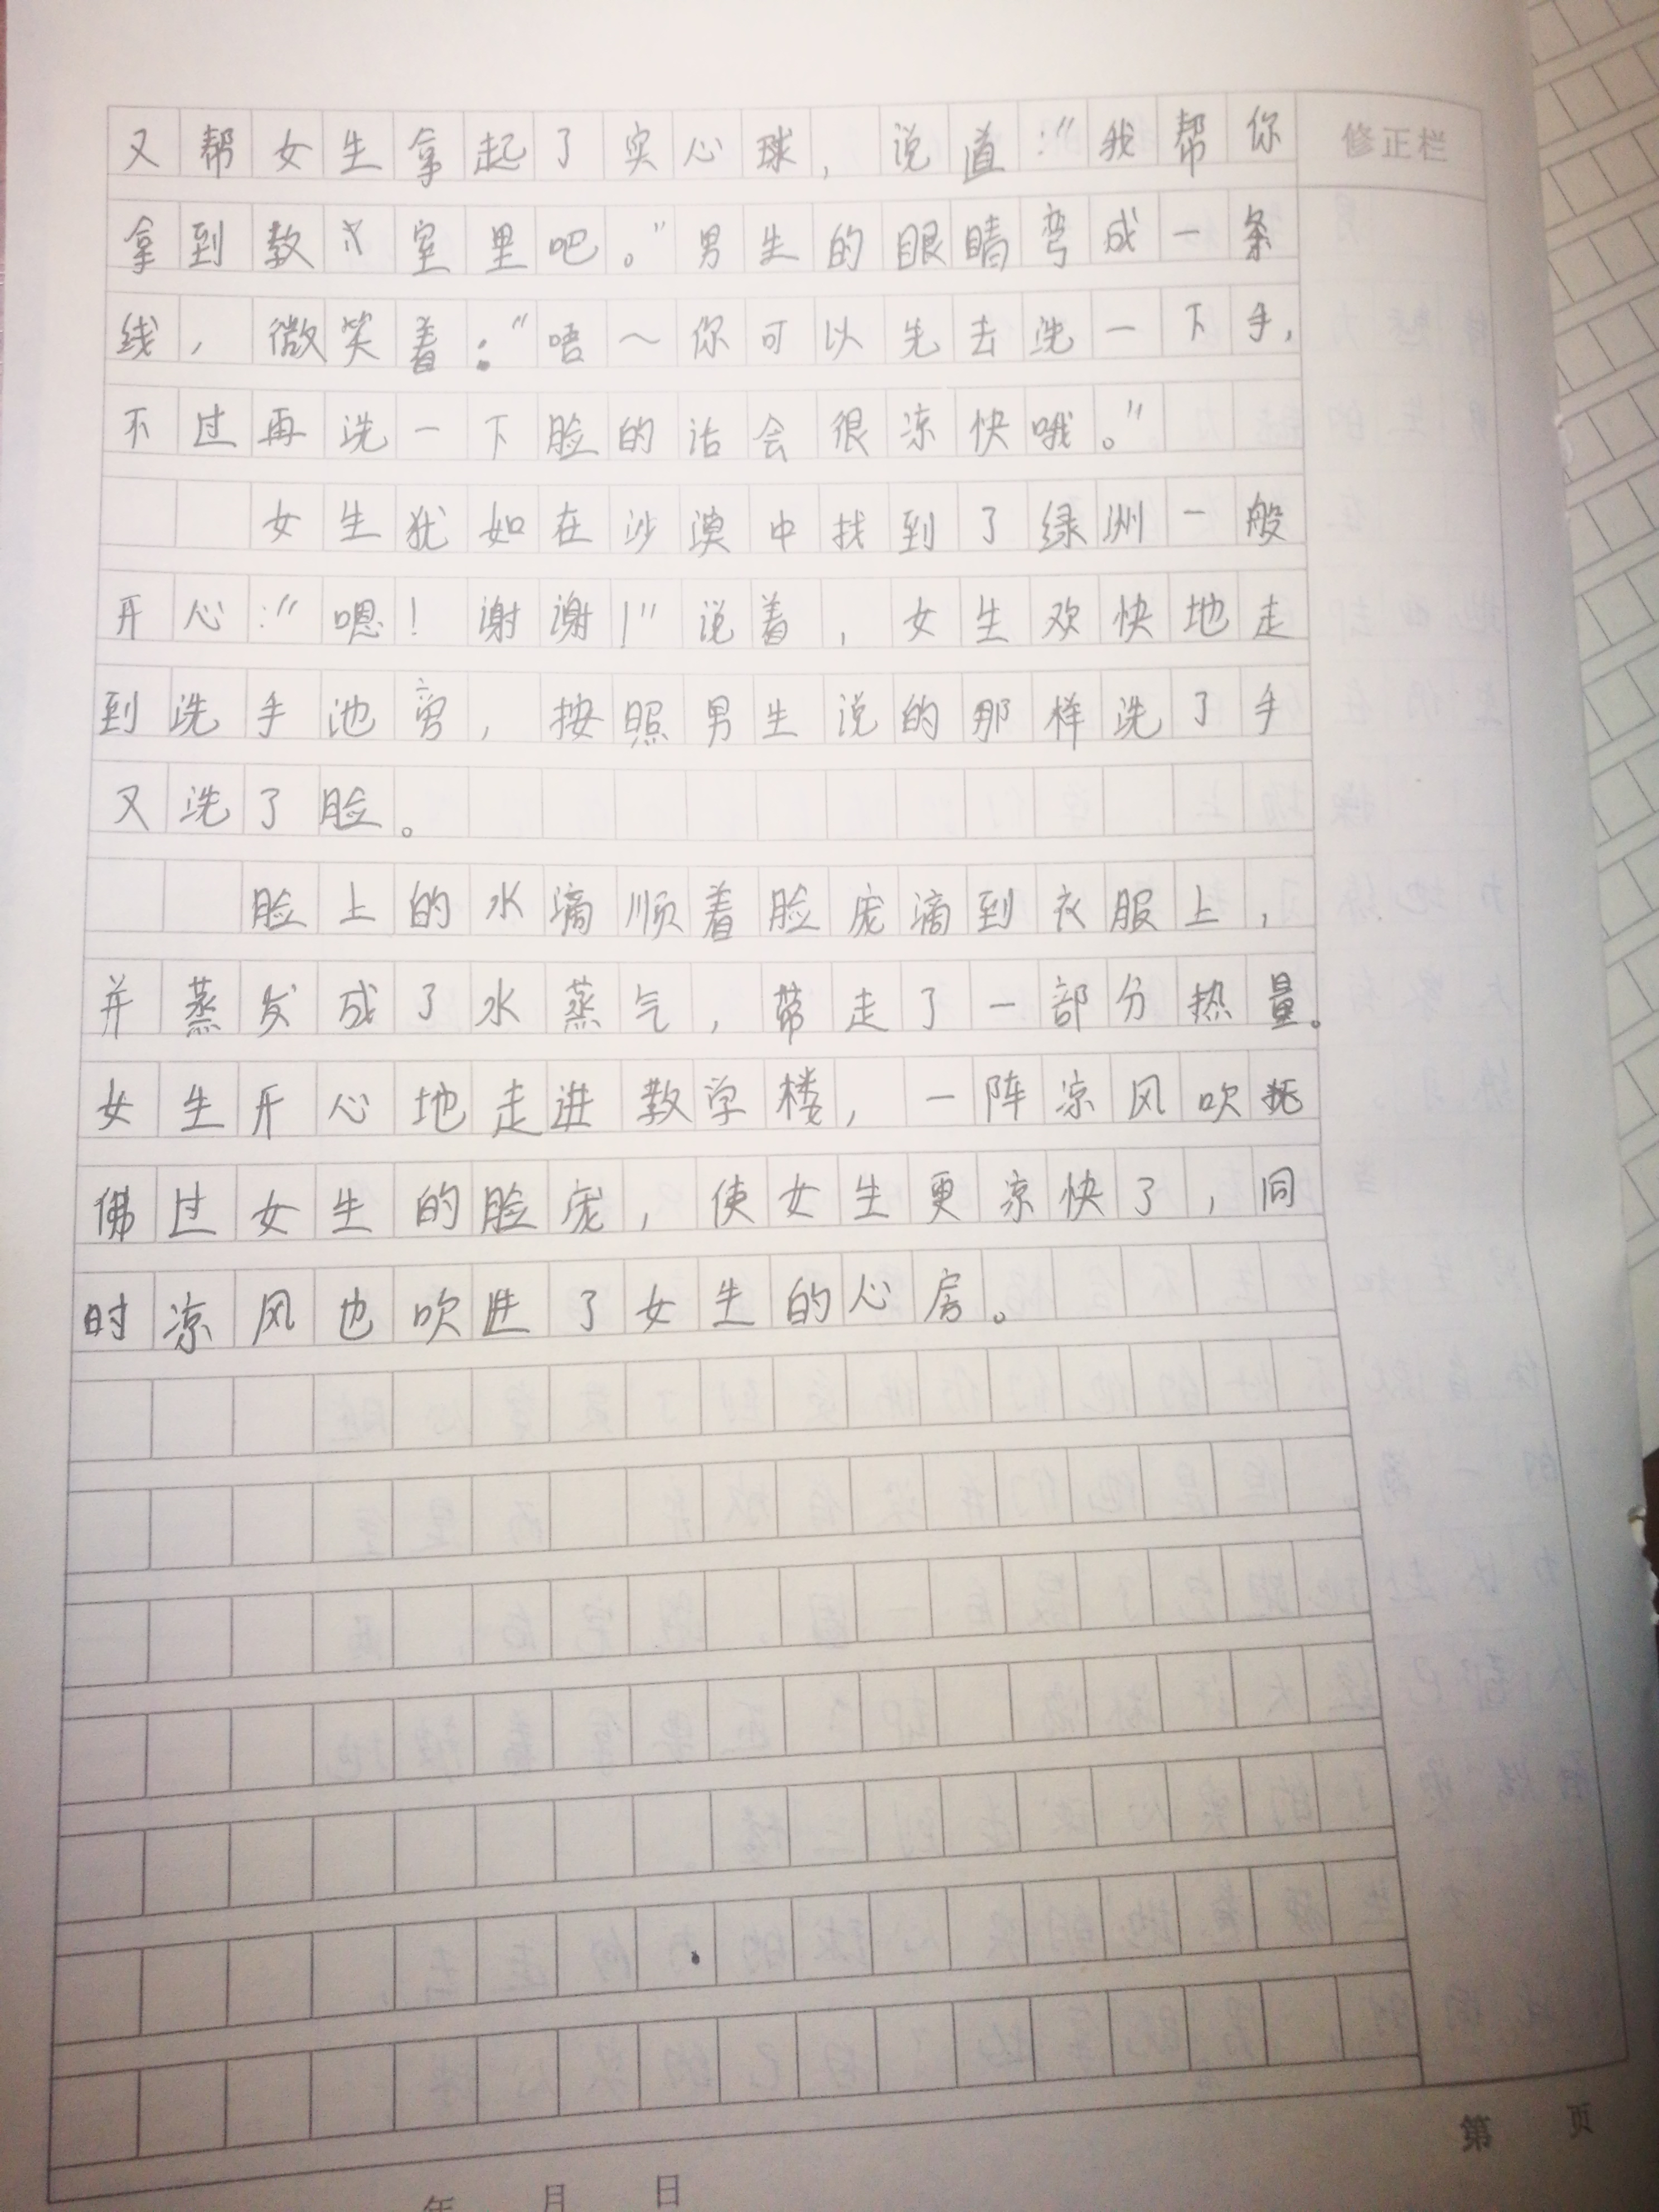 又帮女生拿起了实心球，说道:"我帮你
修正栏
拿到教室里吧。"男生的眼睛弯成一条
线，微笑着："唔～你可以先去洗一下手，
不过再洗一下脸的话会很凉快哦。"
女生犹如在沙漠中找到了绿洲一般
开心:"嗯！谢谢！"说着，女生欢快地走
到洗手池旁，按照男生说的那样洗了手
又洗了脸。
脸上的水滴顺着脸庞滴到衣服上，
并蒸发成了水蒸气，带走了一部分热量。
女生开心地走进教学楼，一阵凉风吹
佛过女生的脸庞，使女生更凉快了，同
时凉风也吹进了女生的心房。
第 页
年 月 日